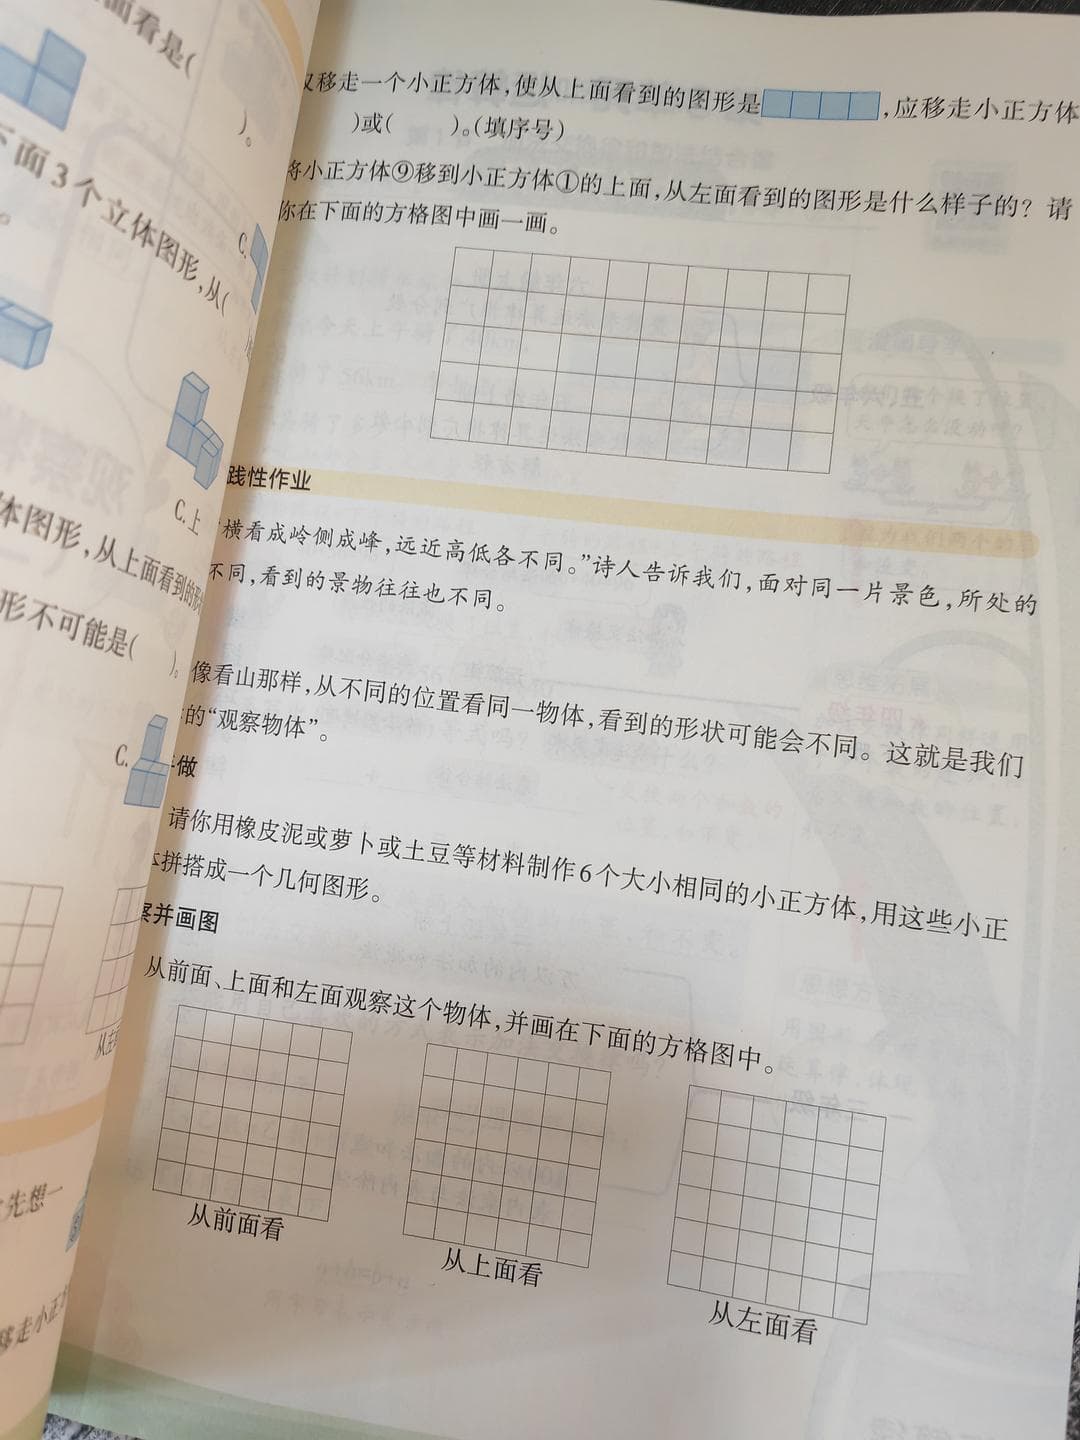 面看是(
)。
下面3个立体图形,从(
。
C.
C.上
体图形,从上面看到的形
形不可能是(
)。
C.
从左
先想一
移走小正方
移走一个小正方体,使从上面看到的图形是,应移走小正方体
)或( )。(填序号)
将小正方体⑨移到小正方体①的上面,从左面看到的图形是什么样子的?请
你在下面的方格图中画一画。
践性作业
横看成岭侧成峰,远近高低各不同。”诗人告诉我们,面对同一片景色,所处的
不同,看到的景物往往也不同。
像看山那样,从不同的位置看同一物体,看到的形状可能会不同。这就是我们
的“观察物体”。
做
请你用橡皮泥或萝卜或土豆等材料制作6个大小相同的小正方体,用这些小正
拼搭成一个几何图形。
察并画图
从前面、上面和左面观察这个物体,并画在下面的方格图中。
从前面看
从上面看
从左面看